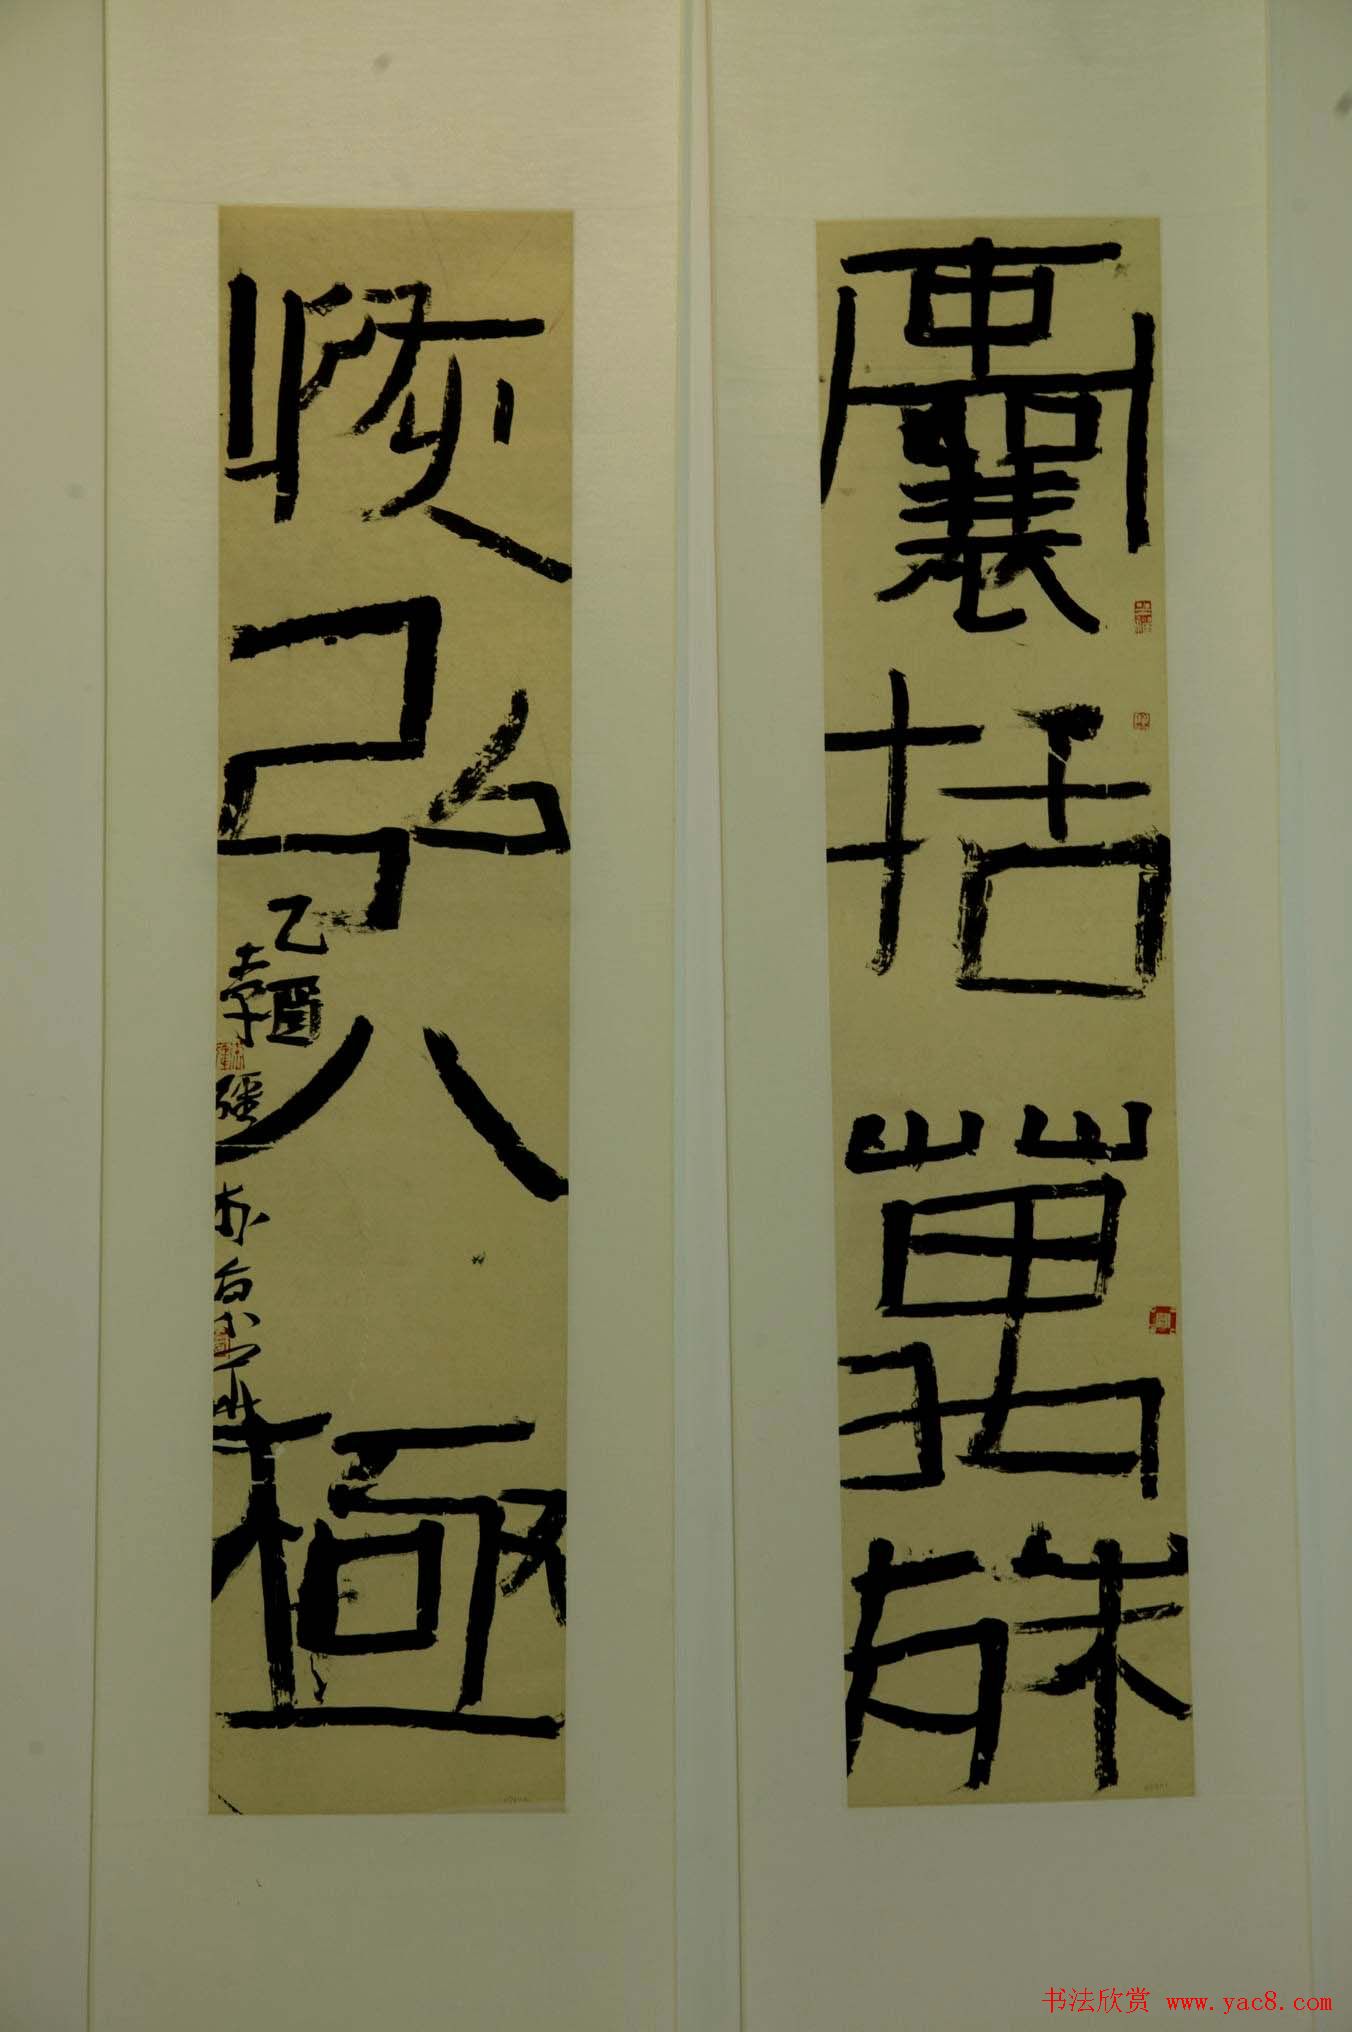 囊括萬殊
恢弘八極
乙酉
書法欣赏 www.yac8.com